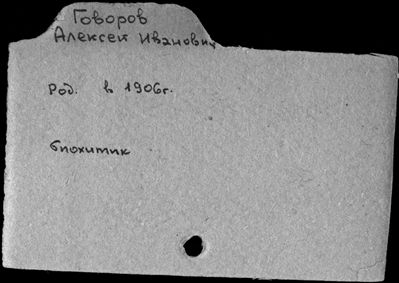 Говоров
Алексей Иванович
Род. в 1906г.
биохимик